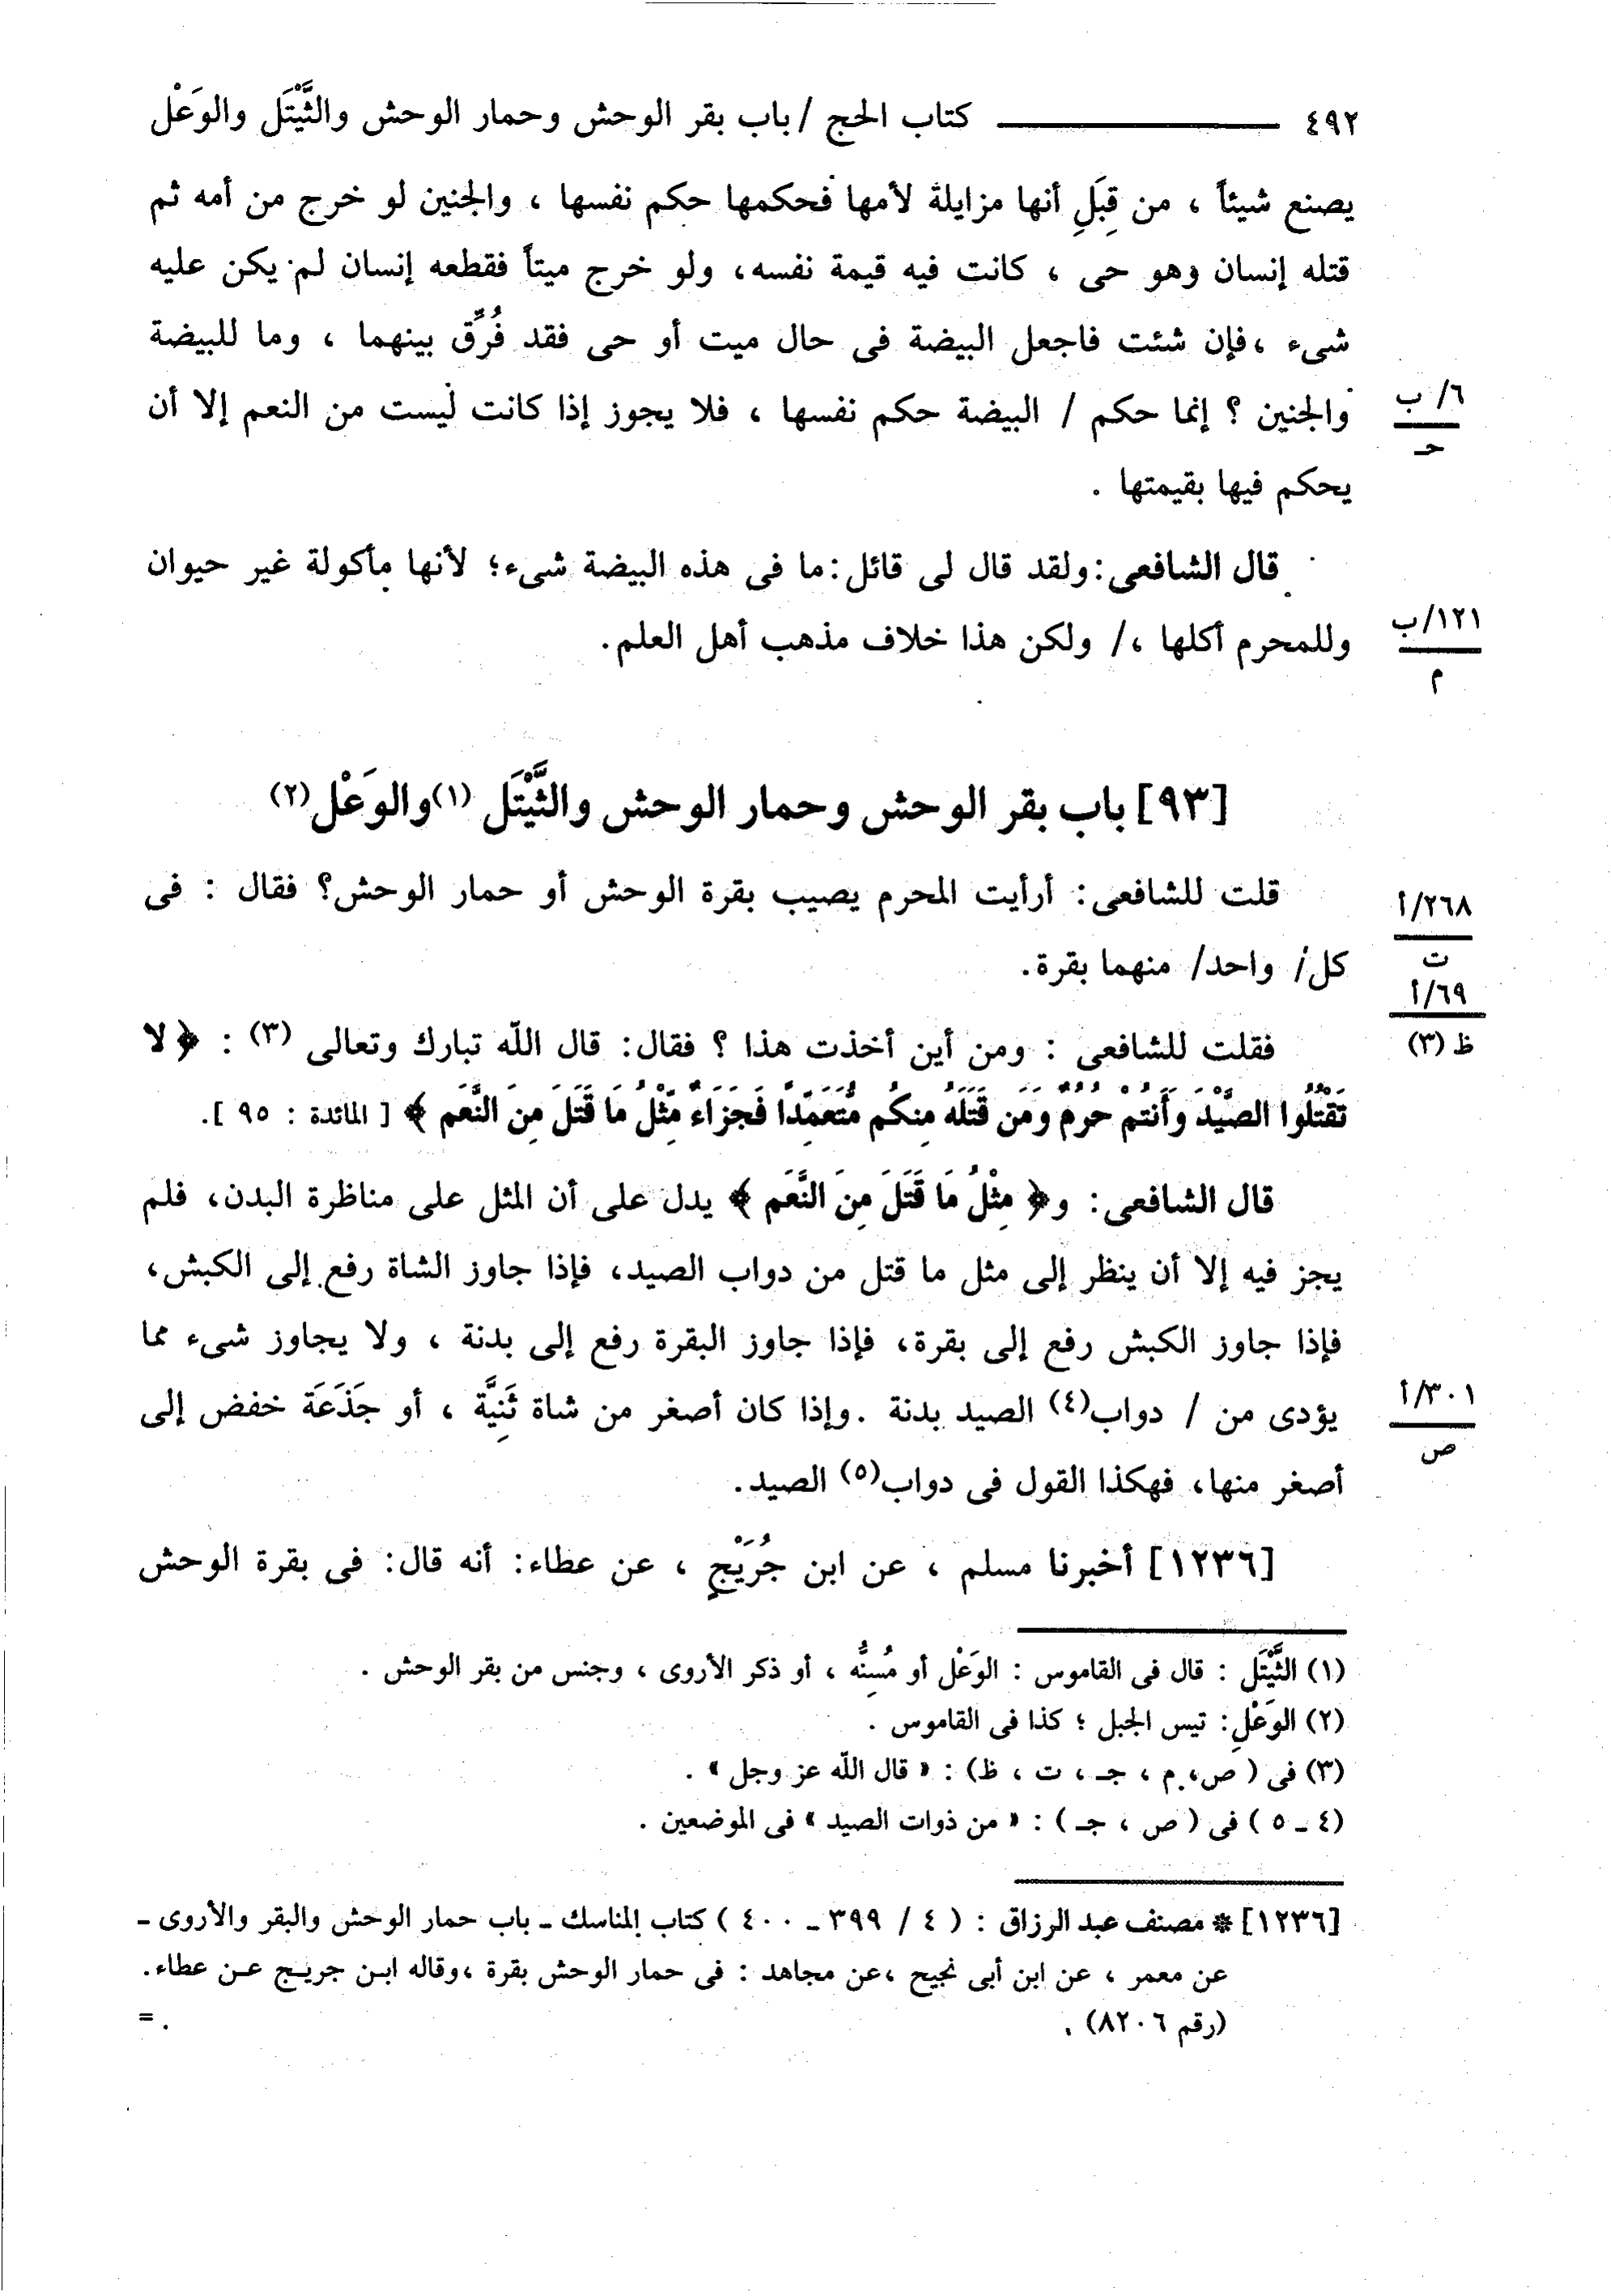 ٤٩٢ كتاب الحج / باب بقر الوحش وحمار الوحش والثَّيْتَل والوَعْل
يصنع شيئاً ، من قِبَلِ أنها مزايلة لأمها فحكمها حكم نفسها ، والجنين لو خرج من أمه ثم
قتله إنسان وهو حى ، كانت فيه قيمة نفسه، ولو خرج ميتاً فقطعه إنسان لم يكن عليه
شىء ،فإن شئت فاجعل البيضة فى حال ميت أو حى فقد فُرِّق بينهما ، وما للبيضة
والجنين ؟ إنما حكم / البيضة حكم نفسها ، فلا يجوز إذا كانت ليست من النعم إلا أن
٦/ ب
حـ
يحكم فيها بقيمتها .
قال الشافعى:ولقد قال لى قائل:ما فى هذه البيضة شىء؛ لأنها مأكولة غير حيوان
وللمحرم أكلها ،/ ولكن هذا خلاف مذهب أهل العلم.
١٢١/ب
م
[٩٣] باب بقر الوحش وحمار الوحش والثَّيْتَل (١)والوَعْل(٢)
قلت للشافعى: أرأيت المحرم يصيب بقرة الوحش أو حمار الوحش؟ فقال : فى
٢٦٨/أ
ت
كل/ واحد/ منهما بقرة.
٦٩/أ
ظ (٣)
فقلت للشافعى : ومن أين أخذت هذا ؟ فقال: قال الله تبارك وتعالى (٣) : ﴿ لا
تَقْتُلُوا الصَّيْدَ وَأَنتُمْ حُرُمٌ وَمَن قَتَلَهُ مِنكُم مُّتَعَمِّدًا فَجَزَاءٌ مِّثْلُ مَا قَتَلَ مِنَ النَّعَمِ ﴾ [ المائدة : ٩٥ ].
قال الشافعى: و﴿ مِثْلُ مَا قَتَلَ مِنَ النَّعَمِ ﴾ يدل على أن المثل على مناظرة البدن، فلم
يجز فيه إلا أن ينظر إلى مثل ما قتل من دواب الصيد، فإذا جاوز الشاة رفع إلى الكبش،
فإذا جاوز الكبش رفع إلى بقرة، فإذا جاوز البقرة رفع إلى بدنة ، ولا يجاوز شىء مما
يؤدى من / دواب(٤) الصيد بدنة .وإذا كان أصغر من شاة ثَنِيَّة ، أو جَذَعَة خفض إلى
٣٠١/أ
ص
أصغر منها، فهكذا القول فى دواب(٥) الصيد.
[١٢٣٦] أخبرنا مسلم ، عن ابن جُرَيْجٍ ، عن عطاء: أنه قال: فى بقرة الوحش
(١) الثَّيْتَل : قال فى القاموس : الوَعْل أو مُسِنُّه ، أو ذكر الأروى ، وجنس من بقر الوحش .
(٢) الوَعْلِ: تيس الجبل ؛ كذا فى القاموس .
(٣) فى ( ص، م ، جـ ، ت ، ظ) : « قال الله عز وجل » .
(٤ ـ ٥ ) فى ( ص ، جـ ) : « من ذوات الصيد » فى الموضعين .
[١٢٣٦] * مصنف عبد الرزاق : ( ٤ / ٣٩٩ ـ ٤٠٠ ) كتاب المناسك ـ باب حمار الوحش والبقر والأروى ـ
عن معمر ، عن ابن أبى نجيح ،عن مجاهد : فى حمار الوحش بقرة ،وقاله ابن جريج عن عطاء.
(رقم ٨٢٠٦) . =